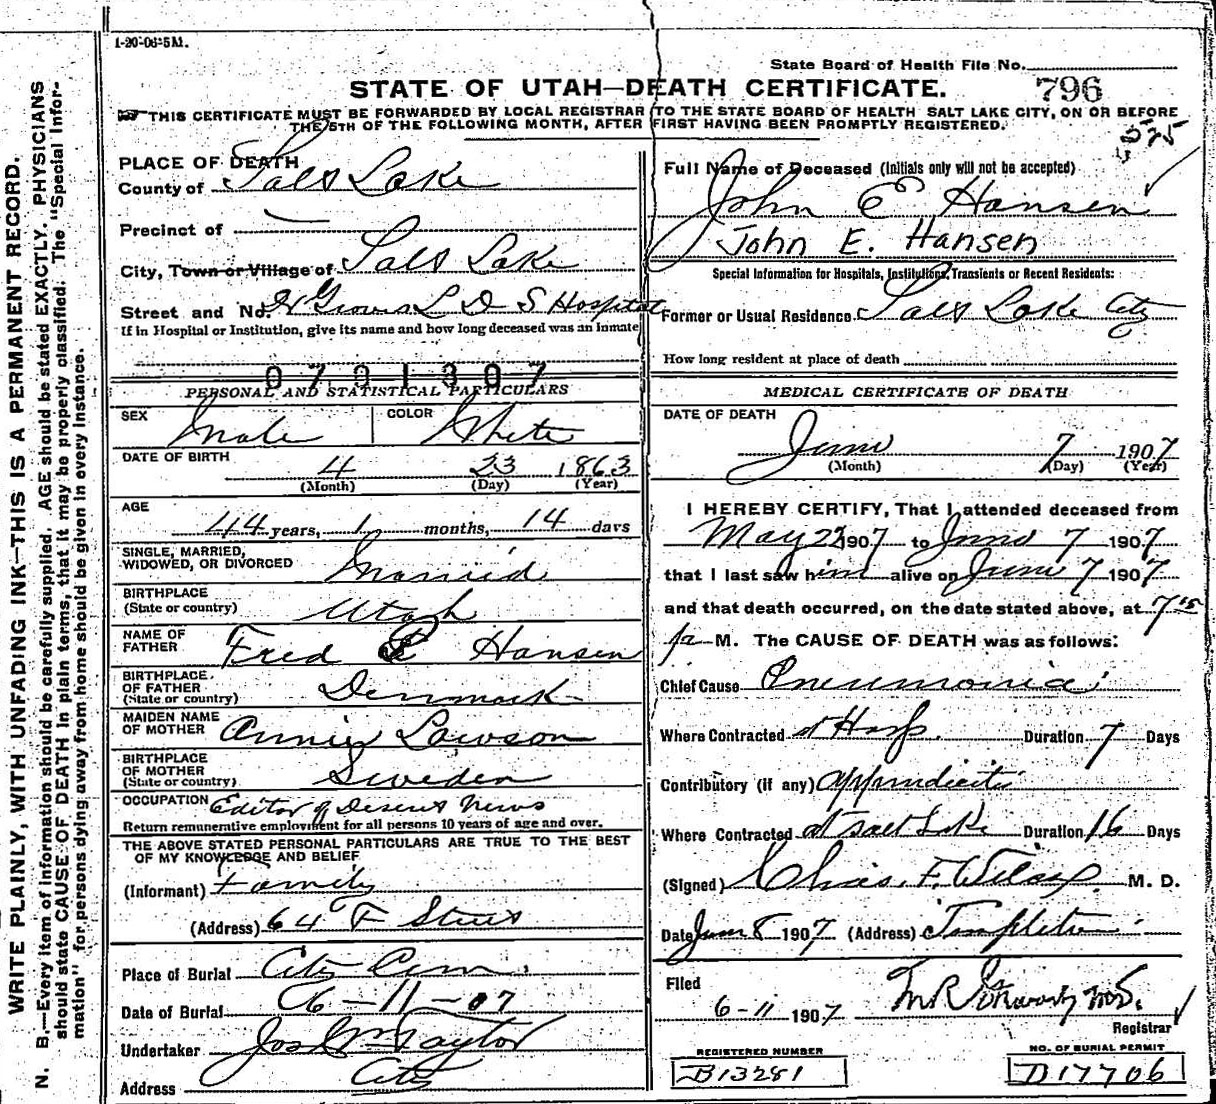 1-20-06-5M.
State Board of Health File No.
STATE OF UTAH—DEATH CERTIFICATE.
796
THIS CERTIFICATE MUST BE FORWARDED BY LOCAL REGISTRAR TO THE STATE BOARD OF HEALTH SALT LAKE CITY, ON OR BEFORE
THE 5TH OF THE FOLLOWING MONTH, AFTER FIRST HAVING BEEN PROMPTLY REGISTERED.
575
WRITE PLAINLY, WITH UNFADING INK—THIS IS A PERMANENT RECORD.
N. B.—Every item of information should be carefully supplied. AGE should be stated EXACTLY. PHYSICIANS
should state CAUSE OF DEATH in plain terms, that it may be properly classified. The "Special Infor-
mation" for persons dying away from home should be given in every instance.
PLACE OF DEATH
County of Salt Lake
Precinct of
City, Town or Village of Salt Lake
Street and No. L D S Hospital
If in Hospital or Institution, give its name and how long deceased was an inmate
0701307
PERSONAL AND STATISTICAL PARTICULARS
SEX Male COLOR White
DATE OF BIRTH 4 23 1863
(Month) (Day) (Year)
AGE 44 years, 1 months, 14 days
SINGLE, MARRIED,
WIDOWED, OR DIVORCED Married
BIRTHPLACE
(State or country) Utah
NAME OF
FATHER Fred Hansen
BIRTHPLACE
OF FATHER
(State or country) Denmark
MAIDEN NAME
OF MOTHER Annie Lawson
BIRTHPLACE
OF MOTHER
(State or country) Sweden
OCCUPATION Editor of Deseret News
Return remunerative employment for all persons 10 years of age and over.
THE ABOVE STATED PERSONAL PARTICULARS ARE TRUE TO THE BEST
OF MY KNOWLEDGE AND BELIEF
(Informant) Family
(Address) 64 F Street
Place of Burial City Cem.
Date of Burial 6-11-07
Undertaker Jos Wm Taylor
Address City
Full Name of Deceased (Initials only will not be accepted)
John E Hansen
John E. Hansen
Special Information for Hospitals, Institutions, Transients or Recent Residents:
Former or Usual Residence Salt Lake City
How long resident at place of death
MEDICAL CERTIFICATE OF DEATH
DATE OF DEATH
June 7 1907
(Month) (Day) (Year)
I HEREBY CERTIFY, That I attended deceased from
May 23 1907 to June 7 1907
that I last saw him alive on June 7 1907
and that death occurred, on the date stated above, at 7 15
p M. The CAUSE OF DEATH was as follows:
Chief Cause Pneumonia
Where Contracted at Hosp. Duration 7 Days
Contributory (if any) appendicitis
Where Contracted at Salt Lake Duration 16 Days
(Signed) Chas. F. Wilcox M. D.
Date June 8 1907 (Address) Templeton
Filed
6-11 1907
Registrar
REGISTERED NUMBER
B13281
NO. OF BURIAL PERMIT
D17706